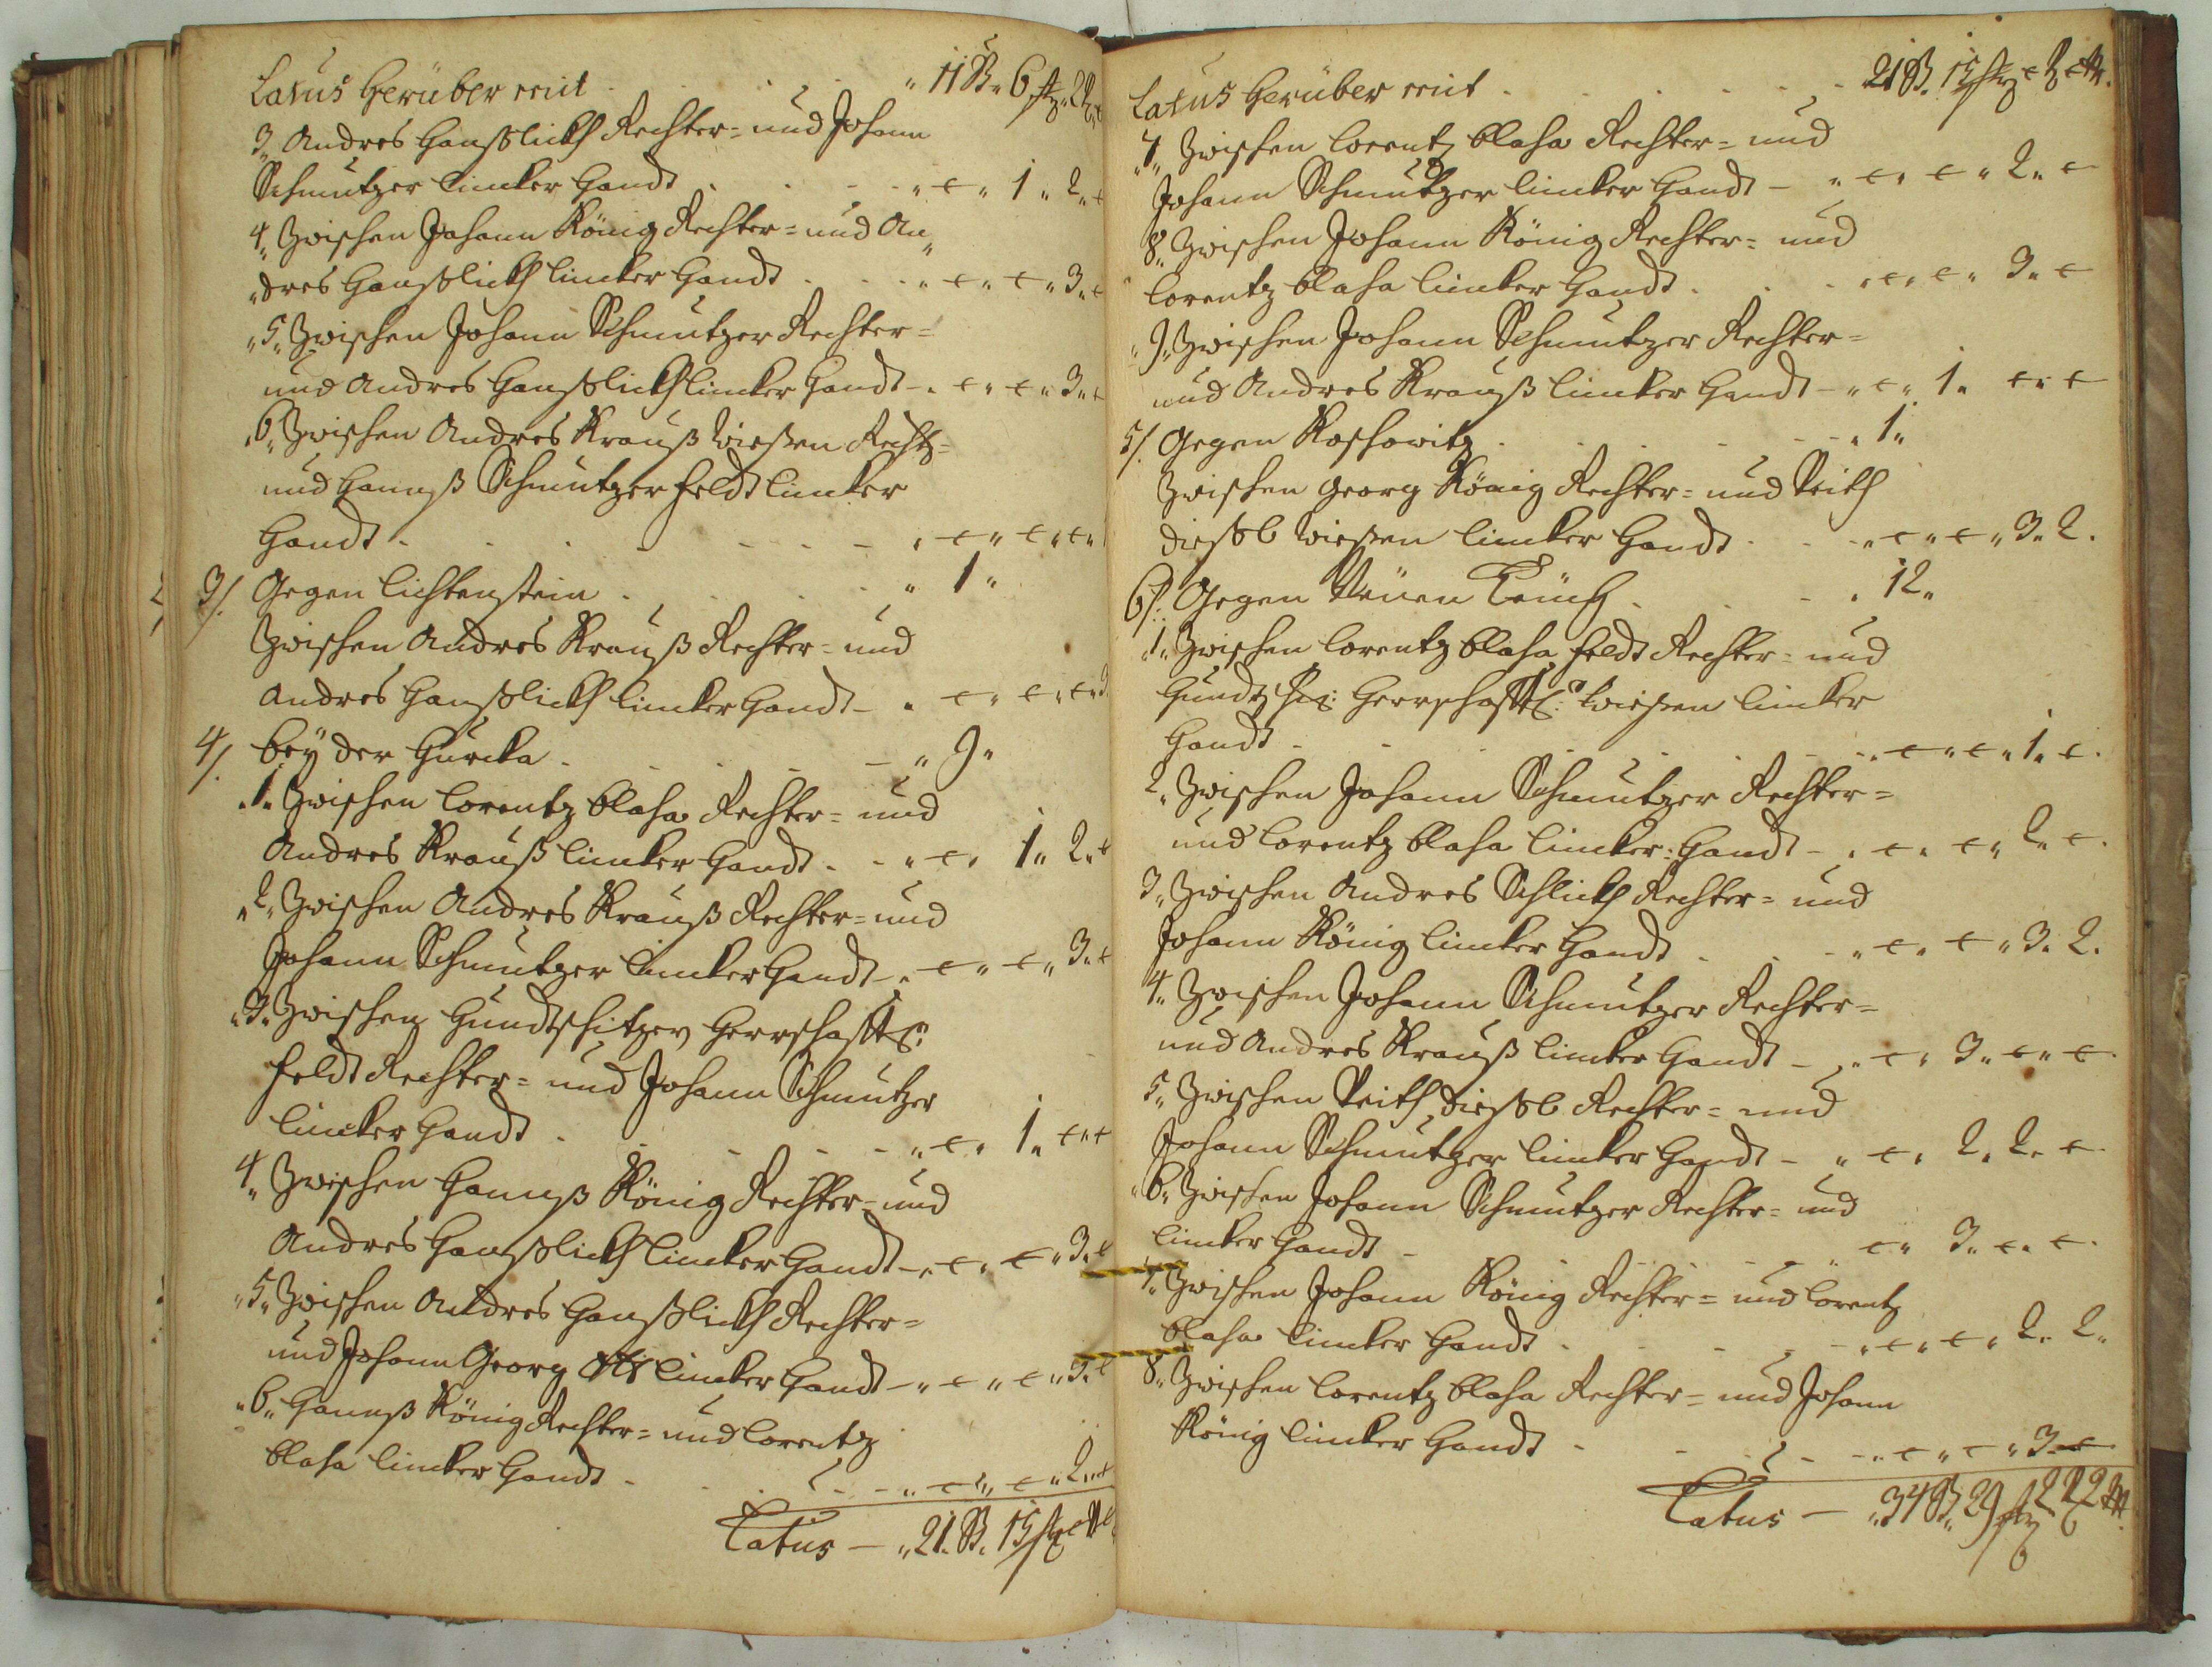 Latus Herüber mit . . . " 11 B " 6 stz " 2
3. Andres Hanßlick Rechter= und Johann
Schmutzer lincker Handt . . . " " 1 " 2 "
4. Zwischen Johann König Rechter= und An
"dres Hanßlick lincker Handt . . . " " " 3 "
5. Zwischen Johann Schmutzer Rechter=
und Andres Hanßlick lincker Handt - " " " 3 "
6. Zwischen Andres Krauß Wießen Recht=
und Hannß Schmutzer Feldt lincker
Handt - . . . " " "
3/. Gegen Lichtenstein . . . " 1 "
Zwischen Andres Krauß Rechter= und
Andres Hanßlick lincker Handt - " " "
4/. bey der Hurcka . . . - " 9 "
1. Zwischen Lorentz blaha Rechter= und
Andres Krauß lincker Handt . - " " 1 " 2 "
2. Zwischen Andres Krauß Rechter= und
Johann Schmutzer lincker Handt - " " " 3 "
3. Zwischen Herrschafftl:
Feldt Rechter= und Johann Schmutzer
lincker Handt . . . - " " 1 "
4. Zwischen Hannß König Rechter= und
Andres Hanßlick lincker Handt - " " " 3 "
5. Zwischen Andres Hanßlick Rechter=
und Johann Georg lincker Handt - " " " 3 "
6. Hannß König Rechter= und Lorentz
blaha lincker Handt - . . . " " " 2 "
Latus - " 21 B. 15 stz
Latus Herüber mit . . . - 21 B. 15 stz
7. Zwischen Lorentz blaha Rechter= und
Johann Schmutzer lincker Handt - " " " 2 "
8. Zwischen Johann König Rechter= und
Lorentz blaha lincker Handt . . . " " " 3 "
9. Zwischen Johann Schmutzer Rechter=
und Andres Krauß lincker Handt - " " 1 "
5/. Gegen . . . - " 1 "
Zwischen Georg König Rechter= und Veith
Wießen lincker Handt . . " " " 3 " 2 .
6/. Gegen Neuen Teüch . . . " 12 "
1. Zwischen Lorentz blaha Feldt Rechter= und
Herrschafftl: Wießen lincker
Handt - . . . " " " 1 "
2. Zwischen Johann Schmutzer Rechter=
und Lorentz blaha lincker Handt - " " " 2 "
3. Zwischen Andres Schlick Rechter= und
Johann König lincker Handt . . . " " " 3 " 2 .
4. Zwischen Johann Schmutzer Rechter=
und Andres Krauß lincker Handt - " " 3 "
5. Zwischen Veith Rechter= und
Johann Schmutzer lincker Handt - " " 2 " 2 "
6. Zwischen Johann Schmutzer Rechter= und
lincker Handt - . . . " " 3 "
7. Zwischen Johann König Rechter= und Lorentz
blaha lincker Handt . . . - " " " 2 " 2 "
8. Zwischen Lorentz blaha Rechter= und Johann
König lincker Handt . . . - " " " 3 "
Latus - " 34 B. 29 stz 2